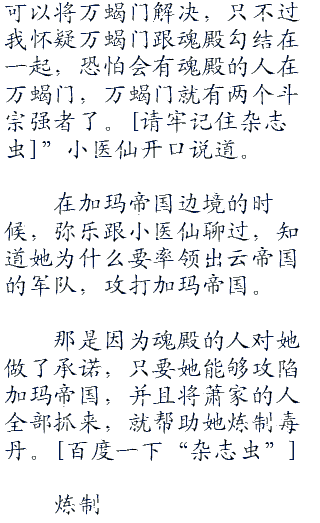 可以将万蝎门解决，只不过
我怀疑万蝎门跟魂殿勾结在
一起，恐怕会有魂殿的人在
万蝎门，万蝎门就有两个斗
宗强者了。[请牢记住杂志
虫]”小医仙开口说道。
在加玛帝国边境的时
候，弥乐跟小医仙聊过，知
道她为什么要率领出云帝国
的军队，攻打加玛帝国。
那是因为魂殿的人对她
做了承诺，只要她能够攻陷
加玛帝国，并且将萧家的人
全部抓来，就帮助她炼制毒
丹。[百度一下“杂志虫”]
炼制